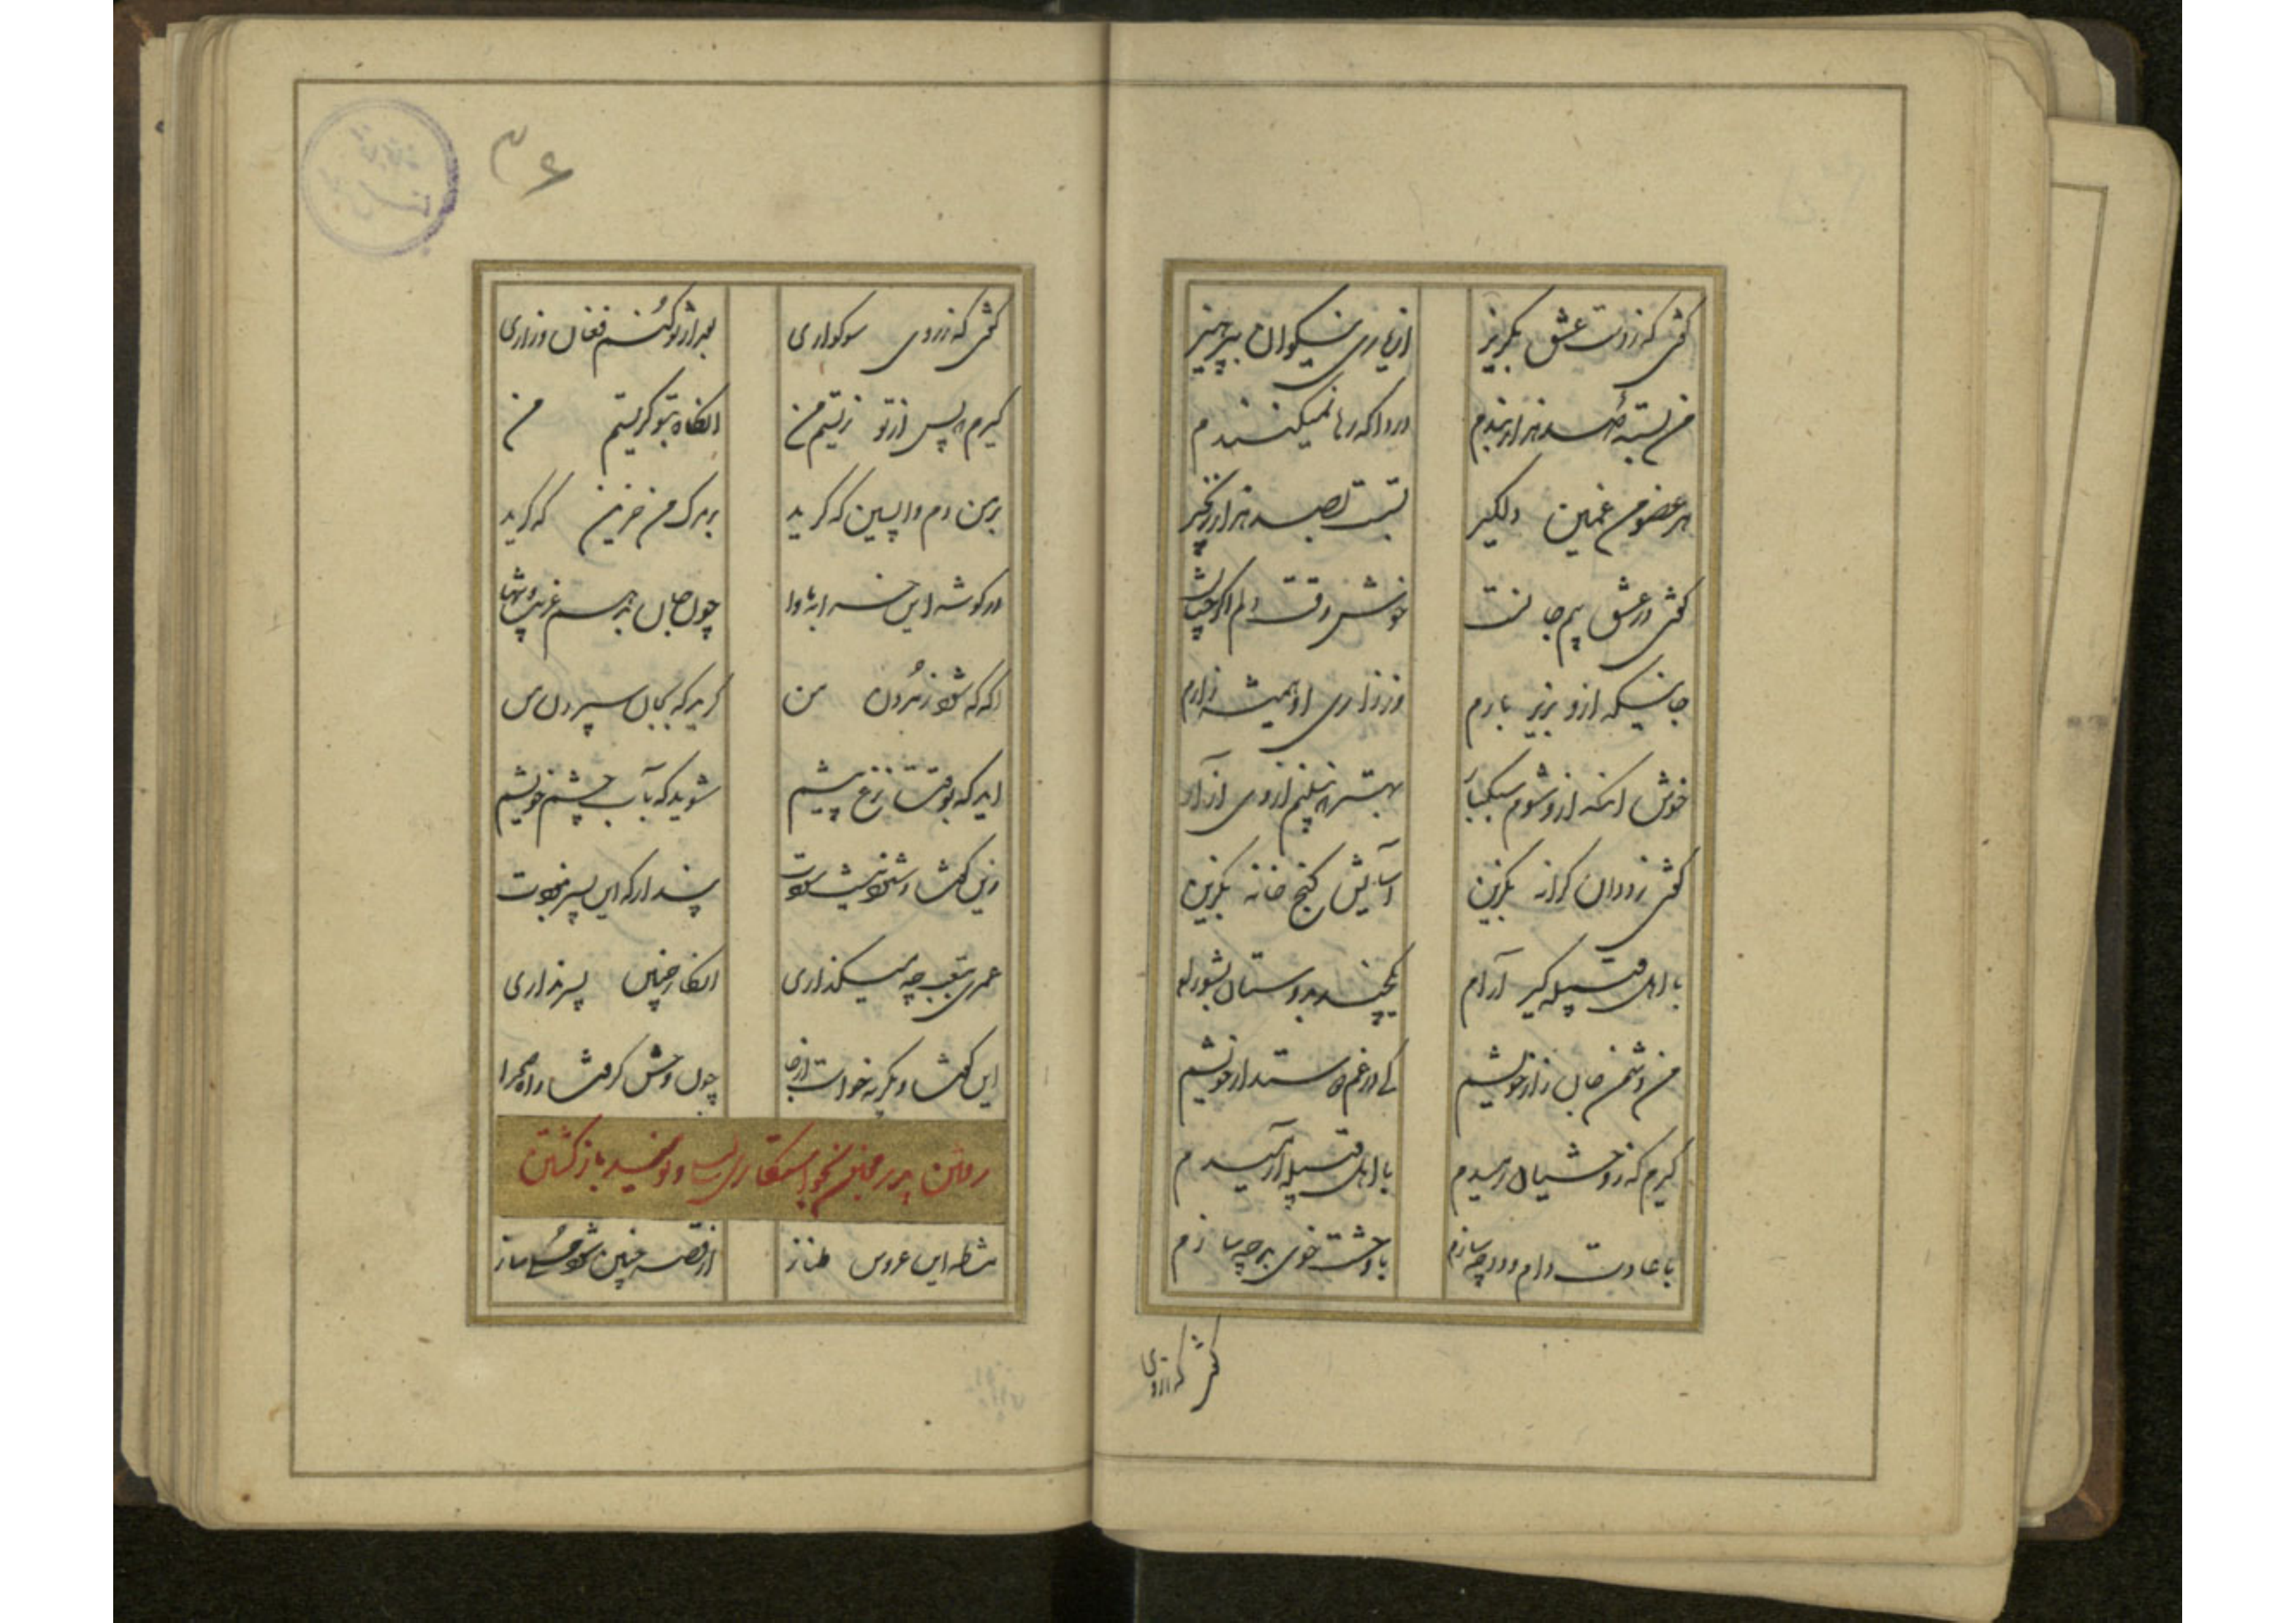 گفتی که ز دوست عشق بگریز از یاری نیکوان بپرهیز
من بسته صد هزار بندم دردا که رها نمیکنندم
هر عضو من غمین دلگیر بستست بصد هزار زنجیر
گفتی در عشق بیم جانست خوش وقت دلم اگر چنانست
جانیکه ازو بزیر بارم وز زاری او همیشه زارم
خوش آنکه ازو شوم سبکبار بهتر که نبینم از وی آزار
گفتی ز ددان کرانه بگزین آسایش کنج خانه بگزین
با اهل قبیله گیر آرام یکچند بدوستان
من دشمن جان زار خویشم کی در غم دوستدار خویشم
گیرم که ز وحشیان رمیدم با اهل قبیله آرمیدم
با عادت دام و دد چه سازم با وحشت خوی بد چه سازم
گفتی که ز روی
۳۶
گفتی که ز روی سوکواری بعد از تو کنم فغان و زاری
گیرم که پس از تو زیستم من آنگاه بتو گریستم من
بر من دم واپسین که گرید بر مرگ من حزین که گرید
در گوشه این خرابه تاوا چون جان بدهم غریب و تنها
آگه که شود ز مردن من گرید که بجان سپردن من
آید که بوقت نزع پیشم شوید که بآب چشم خویشم
زین گفت و شنود نیست سودت پندار که این پسر نبودت
عمری بتعب چه میگذاری انگار چنین پسر نداری
این گفت و بگریه خواست از جا چون وحش گرفت راه صحرا
رفتن پدر مجنون بخواستگاری لیلی و نومید باز گشتن
مشاطه این عروس طناز از قصه چنین شود